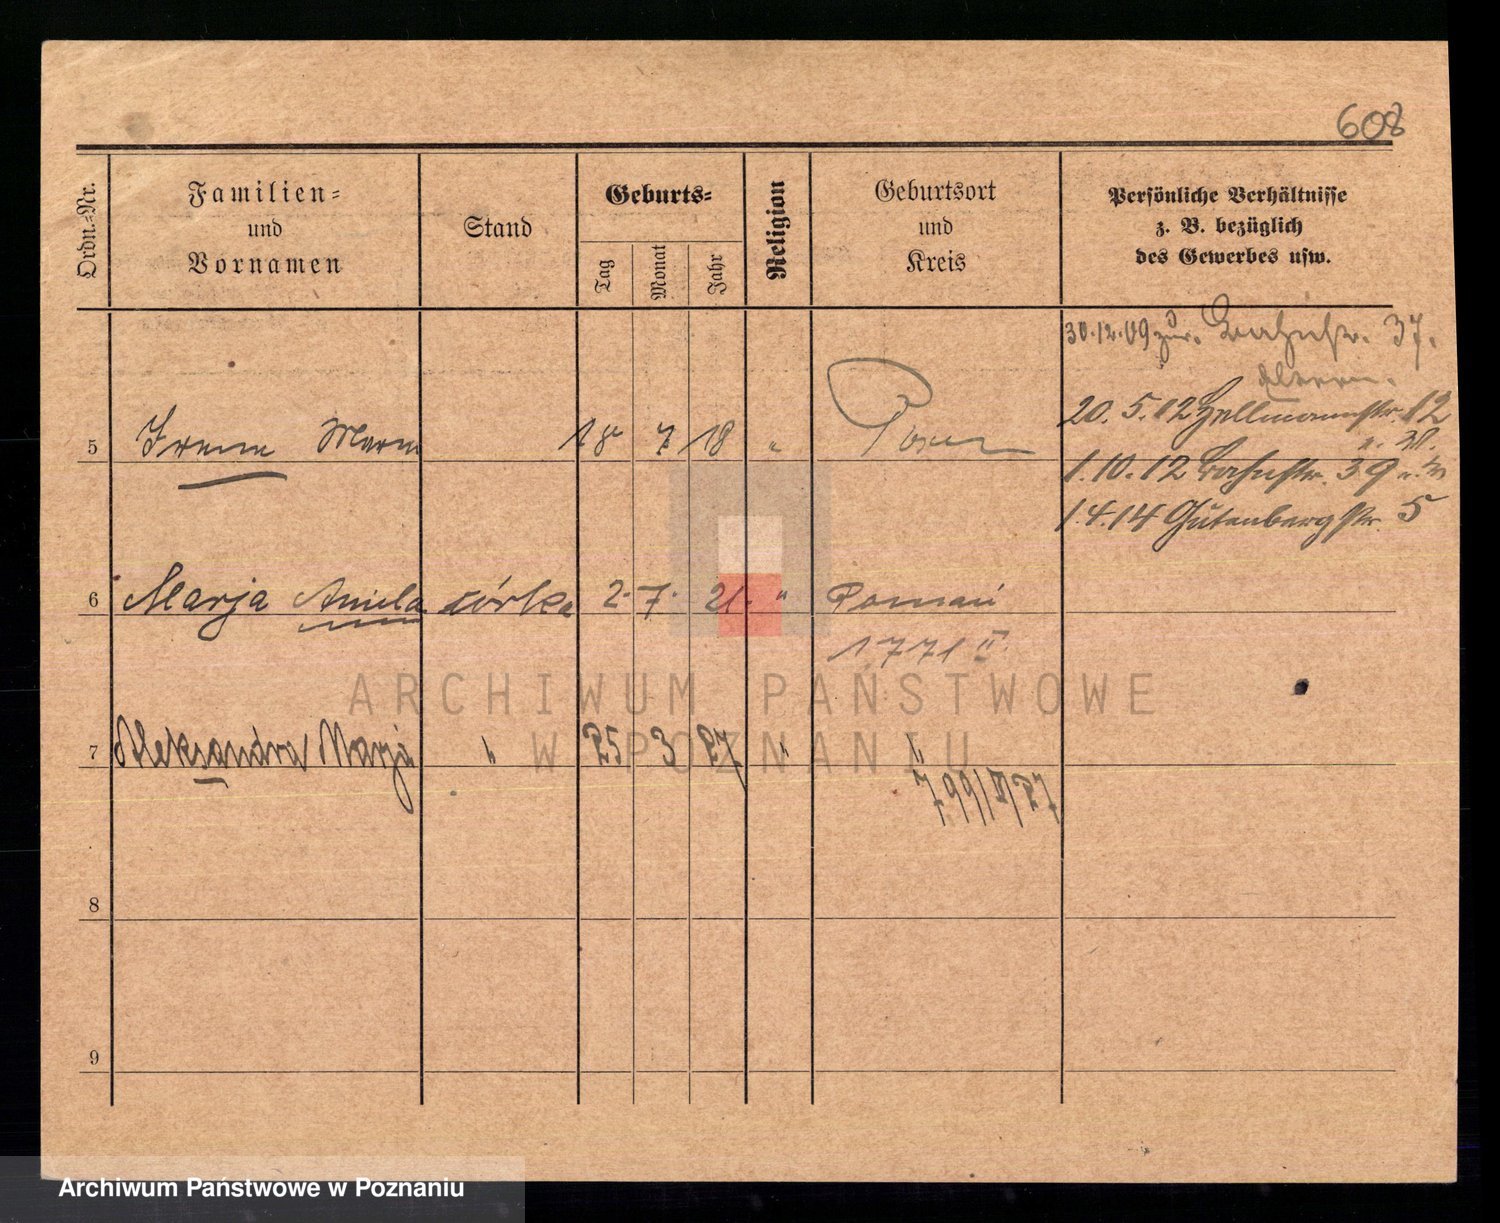 608
Ordn.-Nr.
Familien-
und
Vornamen
Stand
Geburts-
Tag
Monat
Jahr
Religion
Geburtsort
und
Kreis
Persönliche Verhältnisse
z. B. bezüglich
des Gewerbes usw.
30.12.09 zur. Bahnstr. 37.
Eltern.
20. 5. 12 Hellmannstr. 12
5 Irene Maria 18 7 18 " Posen
1.10.12 Bahnstr. 39
1.4.14 Gutenbergstr. 5
6 Marja Aniela córka 2. 7. 21. " Poznań
1771 II
7 Aleksandra Marja " 25 3 27 " "
799/II/27
8
9
ARCHIWUM PAŃSTWOWE
W POZNANIU
Archiwum Państwowe w Poznaniu